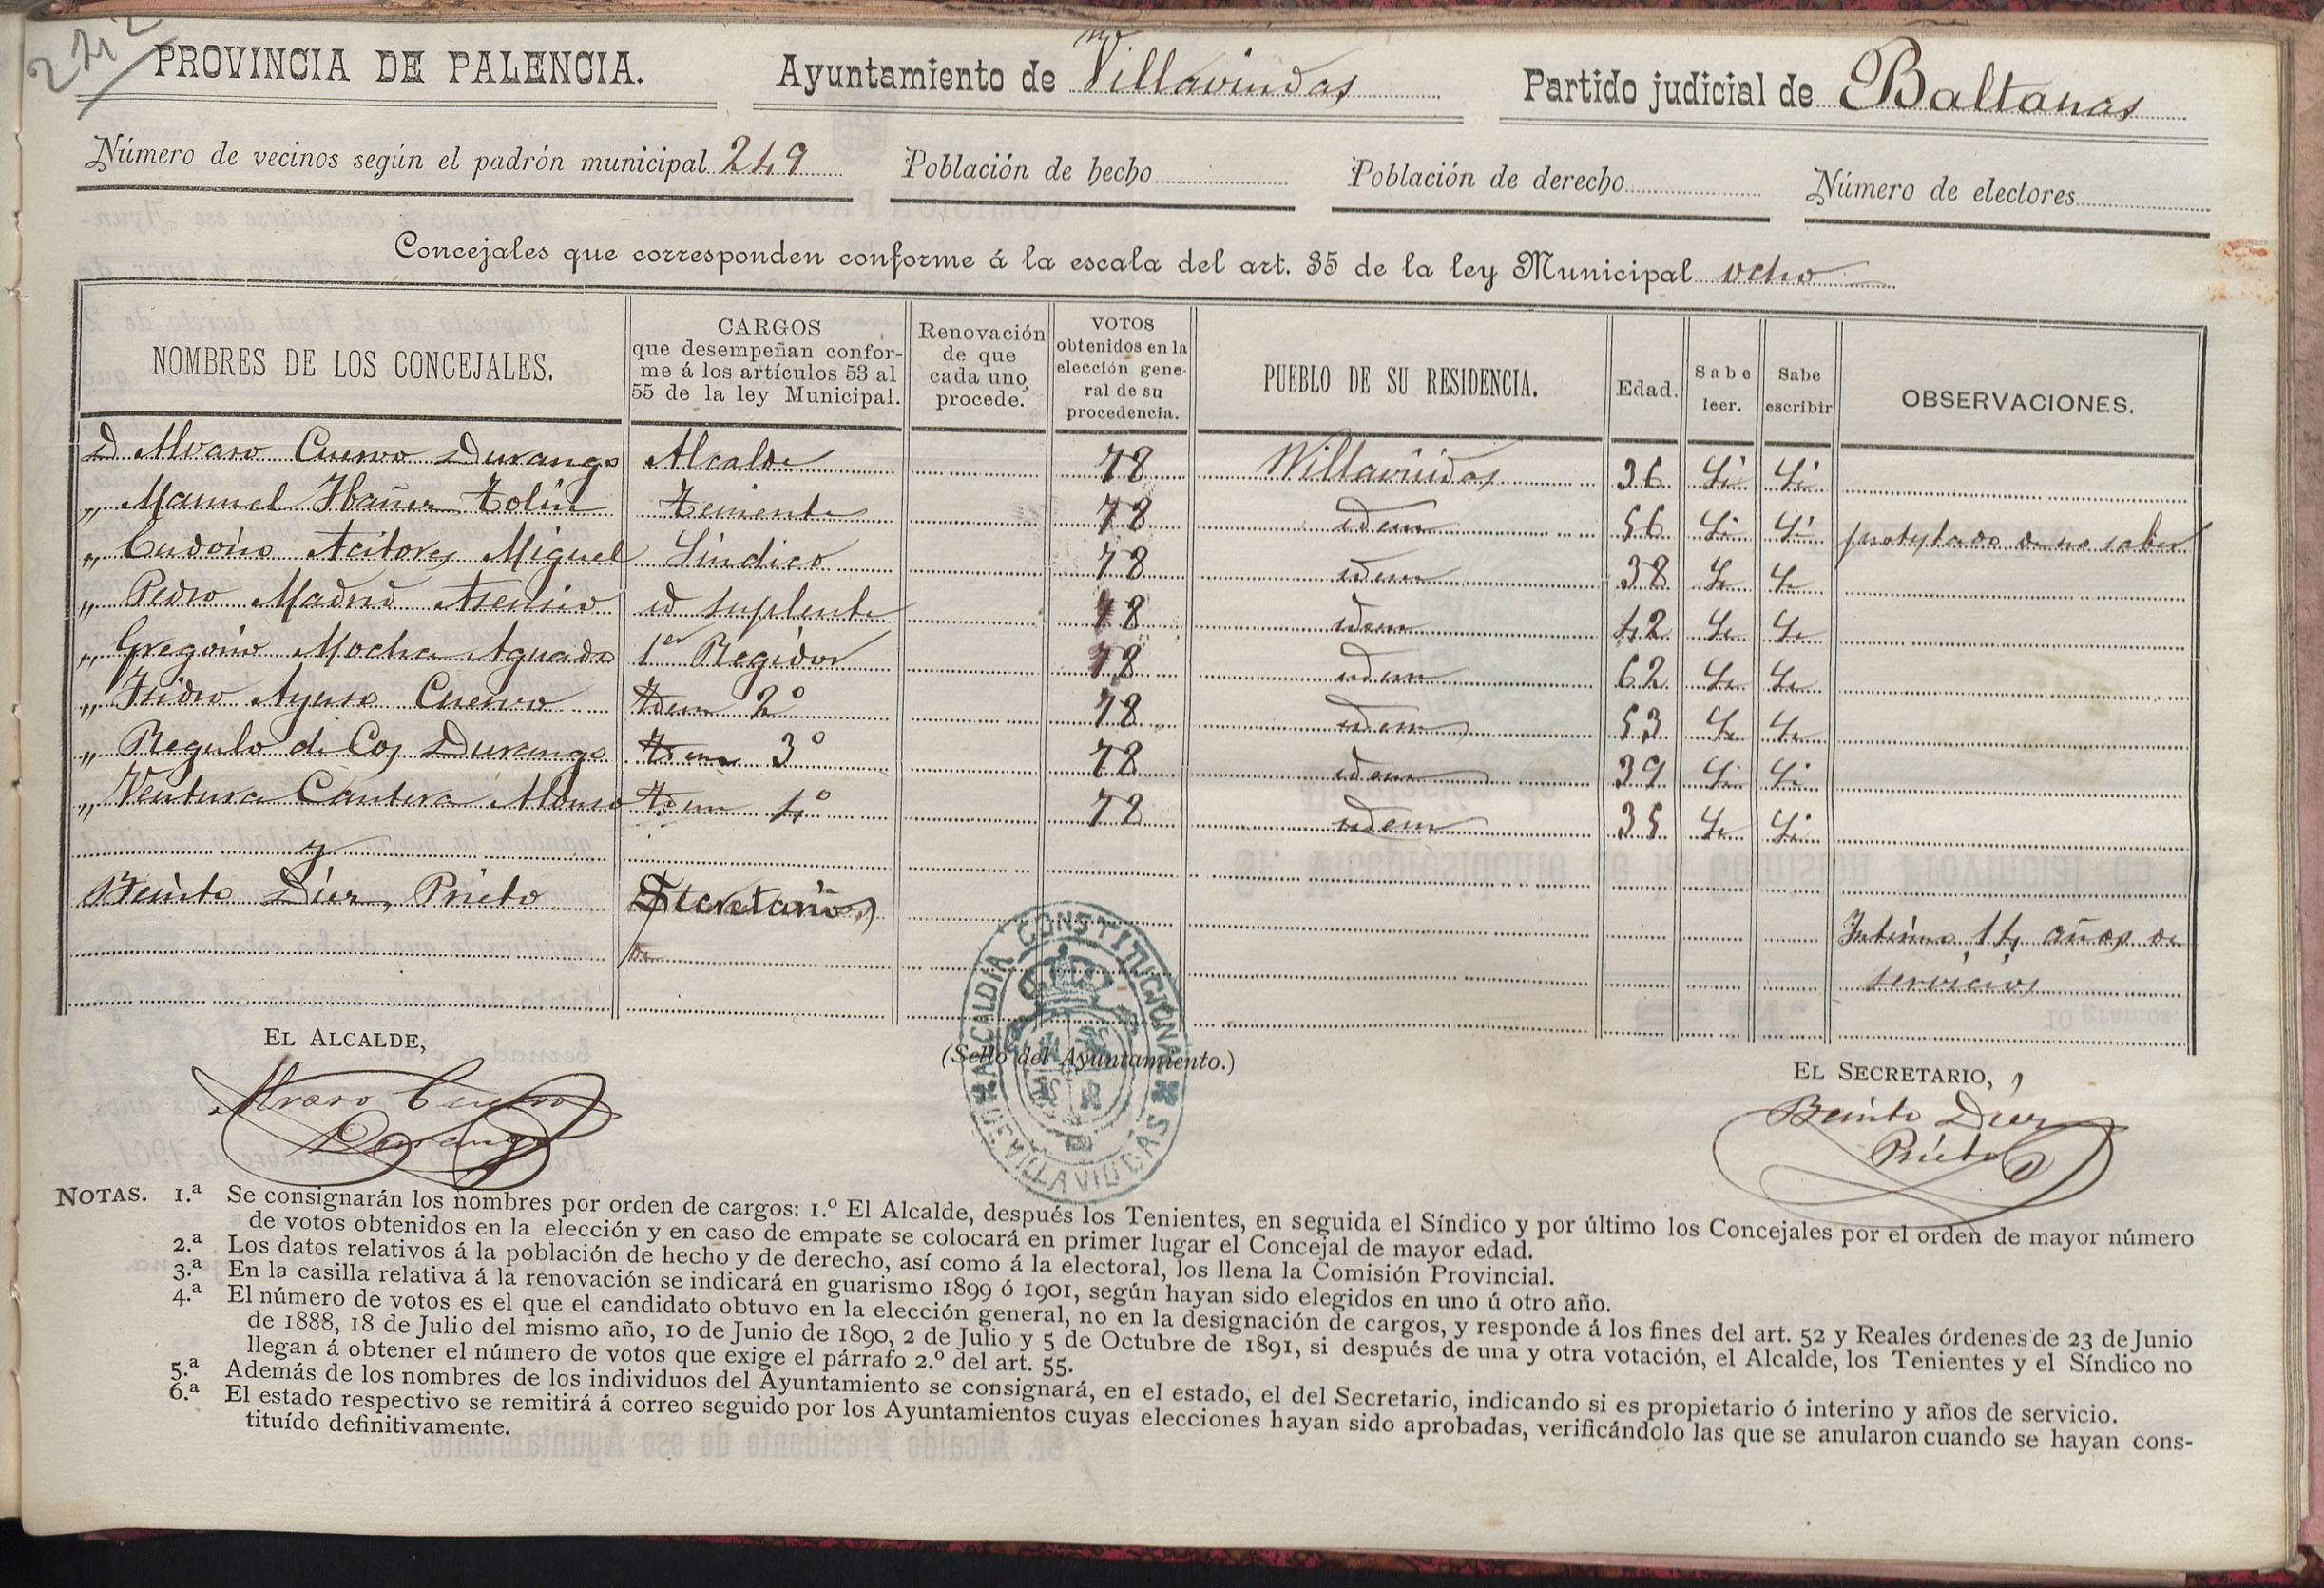 242
PROVINCIA DE PALENCIA. Ayuntamiento de Villaviudas Partido judicial de Baltanas
Número de vecinos según el padrón municipal 249 Población de hecho Población de derecho Número de electores
Concejales que corresponden conforme á la escala del art. 35 de la ley Municipal ocho
NOMBRES DE LOS CONCEJALES. CARGOS que desempeñan confor-me á los artículos 53 al 55 de la ley Municipal. Renovación de que cada uno procede. VOTOS obtenidos en la elección gene-ral de su procedencia. PUEBLO DE SU RESIDENCIA. Edad. Sabe leer. Sabe escribir OBSERVACIONES.
D Alvaro Cuervo Durango Alcalde 78 Villaviudas 36 Si Si
" Manuel Ibañez Tolin Teniente 78 idem 56 Si Si protestado de no saber
" Acitores Miguel Sindico 78 idem 38 Si Si
" Pedro Madrid Asensio id suplente 78 idem 42 Si Si
" Gregorio Mocha Aguado 1er Regidor 78 idem 62 Si Si
" Isidro Ayuso Cuervo Idem 2º 78 idem 53 Si Si
" Regulo de Cos Durango Idem 3º 78 idem 39 Si Si
" Ventura Cantera Alonso Idem 4º 78 idem 35 Si Si
y
Benito Diez Prieto Secretario Interino 14 años de
servicios
EL ALCALDE, (Sello del Ayuntamiento.) EL SECRETARIO,
Alvaro Cuervo
Durango
Benito Diez
Prieto
ALCALDIA CONSTITUCIONAL DE VILLAVIUDAS
NOTAS. 1.ª Se consignarán los nombres por orden de cargos: 1.º El Alcalde, después los Tenientes, en seguida el Síndico y por último los Concejales por el orden de mayor número
de votos obtenidos en la elección y en caso de empate se colocará en primer lugar el Concejal de mayor edad.
2.ª Los datos relativos á la población de hecho y de derecho, así como á la electoral, los llena la Comisión Provincial.
3.ª En la casilla relativa á la renovación se indicará en guarismo 1899 ó 1901, según hayan sido elegidos en uno ú otro año.
4.ª El número de votos es el que el candidato obtuvo en la elección general, no en la designación de cargos, y responde á los fines del art. 52 y Reales órdenes de 23 de Junio
de 1888, 18 de Julio del mismo año, 10 de Junio de 1890, 2 de Julio y 5 de Octubre de 1891, si después de una y otra votación, el Alcalde, los Tenientes y el Síndico no
llegan á obtener el número de votos que exige el párrafo 2.º del art. 55.
5.ª Además de los nombres de los individuos del Ayuntamiento se consignará, en el estado, el del Secretario, indicando si es propietario ó interino y años de servicio.
6.ª El estado respectivo se remitirá á correo seguido por los Ayuntamientos cuyas elecciones hayan sido aprobadas, verificándolo las que se anularon cuando se hayan cons-
tituído definitivamente.